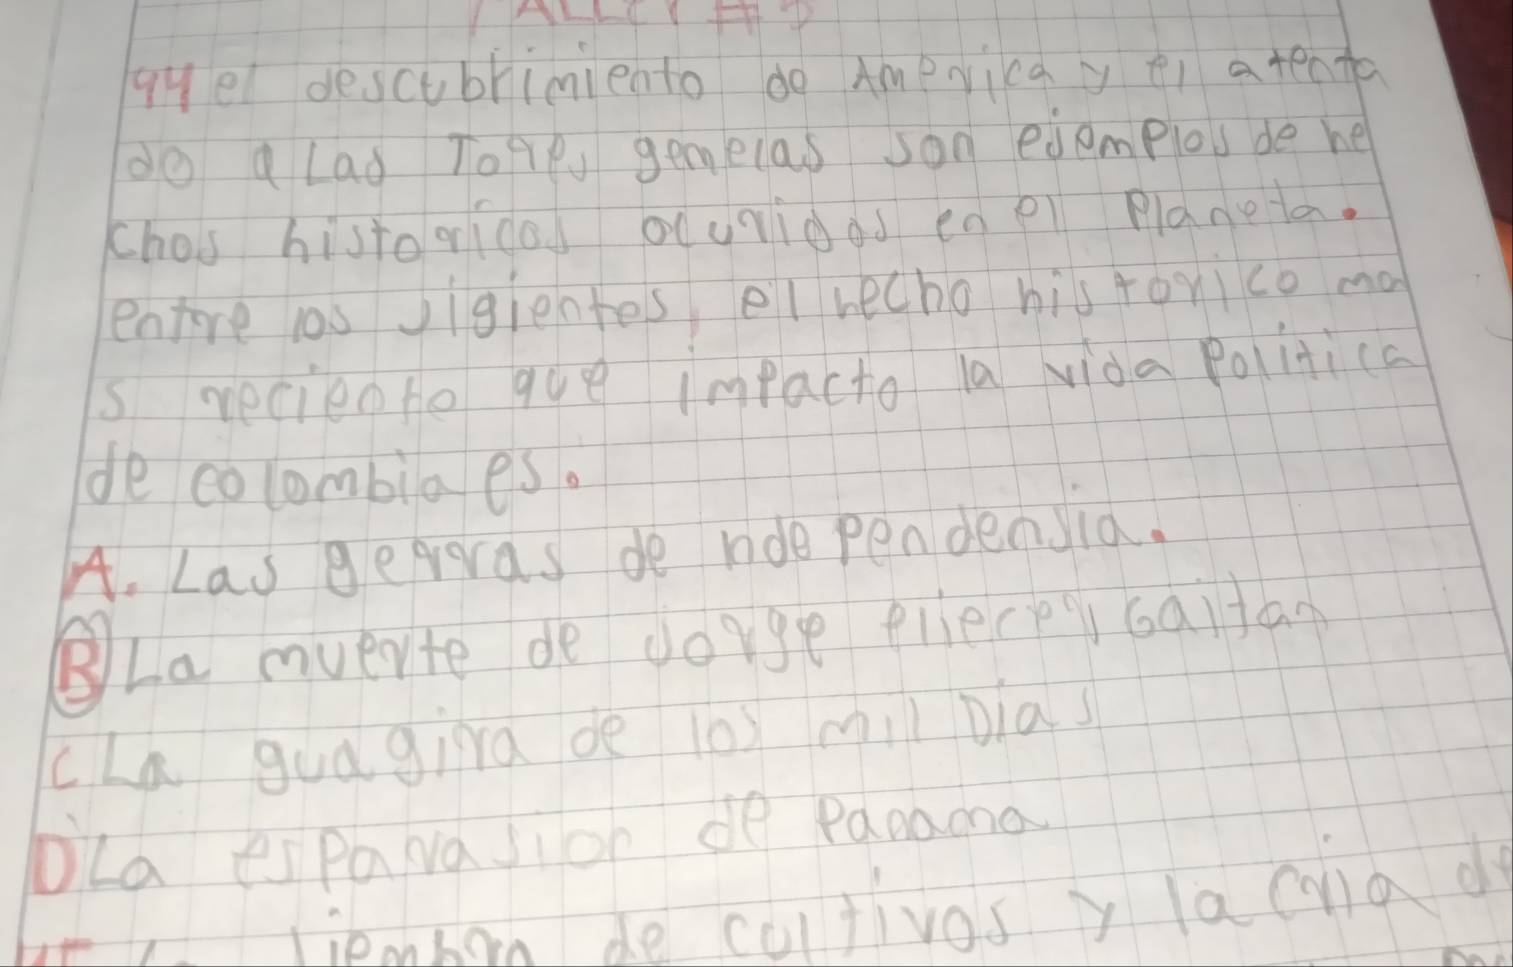 TALLER #3
44 el descubrimiento de America y el atenta
do a Las Tores gemelas son ejemplos de he
chos historicos ocuridos en el Planeta.
entre los sigientes, el hecho historico ma
s reciente que impacto la vida Politica
de colombia es.
A. Las gerras de ndependensia.
B La muerte de jorge eliecer gaitan
C La guagira de los mil Dias
D La esparasion de Panama
siembra de cultivos y la cria de